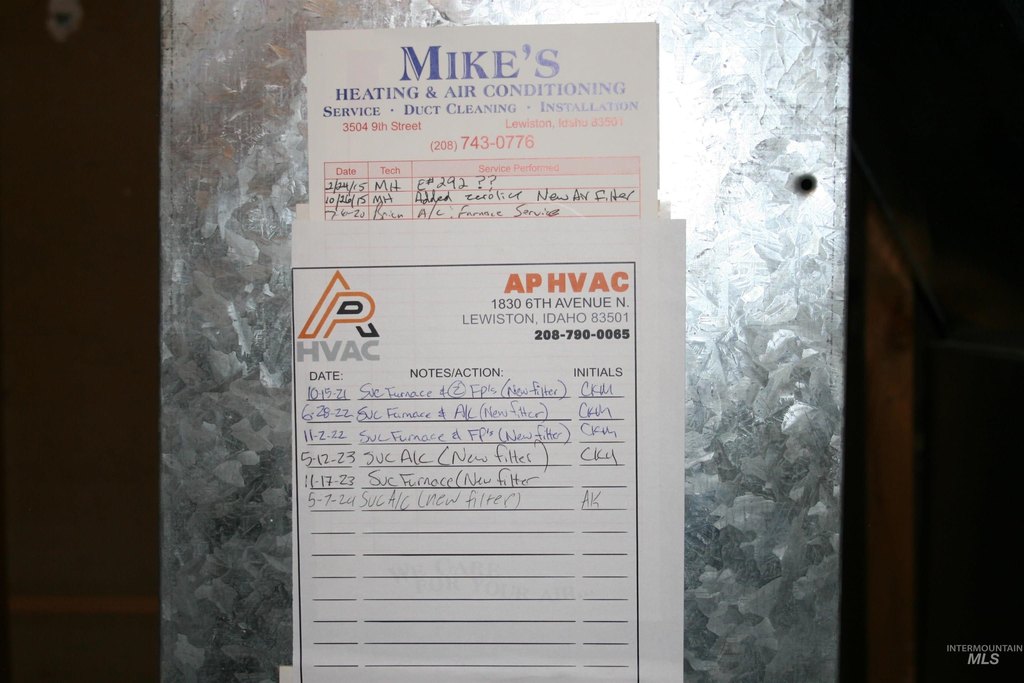 MIKE'S
HEATING & AIR CONDITIONING
SERVICE · DUCT CLEANING · INSTALLATION
3504 9th Street Lewiston, Idaho 83501
(208) 743-0776
Date Tech Service Performed
2/24/15 MH E#292 ??
10/26/15 MH Added New Air Filter
7-6-20 Brian A/C, Furnace Service
APR HVAC
AP HVAC
1830 6TH AVENUE N.
LEWISTON, IDAHO 83501
208-790-0065
DATE: NOTES/ACTION: INITIALS
10-15-21 Svc Furnace & (2) FP's (New filter) CKM
6-28-22 Svc Furnace & A/C (New filter) CKM
11-2-22 Svc Furnace & FP's (New filter) CKM
5-12-23 SVC A/C (New filter) CKM
11-17-23 Svc Furnace (New filter
5-7-24 Svc A/C (new filter) AK
WE CARE
FOR YOUR AIR
INTERMOUNTAIN
MLS